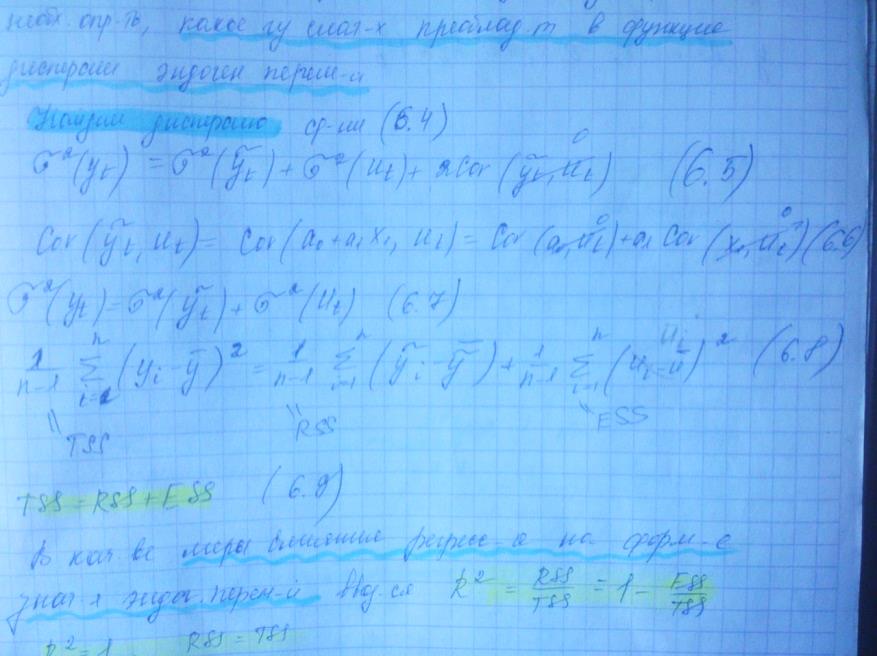 необх. опр-ть, какое из слаг-х преоблад.т в функции
дисперсии эндоген перем-й
Найдем дисперсию ср-ии (6.4)
σ²(yₜ) = σ²(ỹₜ) + σ²(uₜ) + 2Cov(ỹₜ, uₜ) 0 (6.5)
Cov(ỹₜ, uₜ) = Cov(a₀ + a₁x₁, uₜ) = Cov(a₀, uₜ) 0 + a₁ Cov(x₁, uₜ) 0 (6.6)
σ²(yₜ) = σ²(ỹₜ) + σ²(uₜ) (6.7)
1/(n-1) Σ(yᵢ - ȳ)² = 1/(n-1) Σ(ỹᵢ - ȳ) + 1/(n-1) Σ(uᵢ - ū)² (6.8)
TSS RSS ESS
TSS = RSS + ESS (6.9)
В кач-ве меры влияния регресс-а на форм-е
знач-я эндог. перем-й ввод-ся R² = RSS/TSS = 1 - ESS/TSS
R² = 1 RSS = TSS